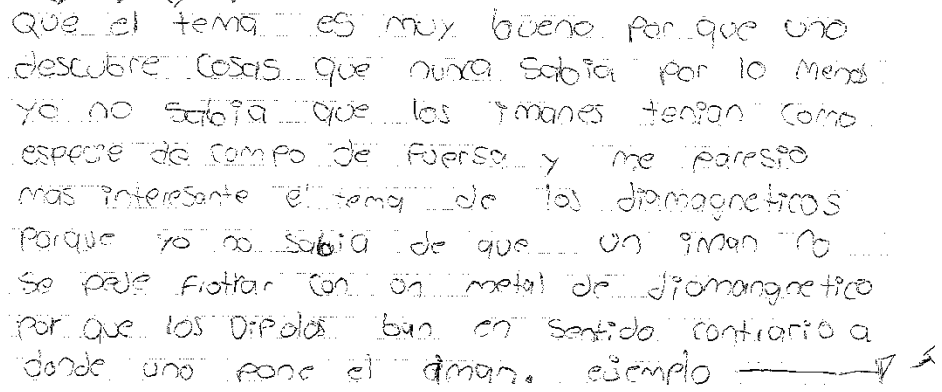 Que el tema es muy bueno por que uno
descubre cosas que nunca sabia por lo menos
yo no sabia que los imanes tenian como
especie de campo de fuersa y me paresio
mas interesante el tema de los diamagneticos
porque yo no sabia de que un iman no
se pede frotrar con un metal de diomangnetico
por que los Dipolos ban en sentido contrario a
donde uno pone el iman. ejemplo